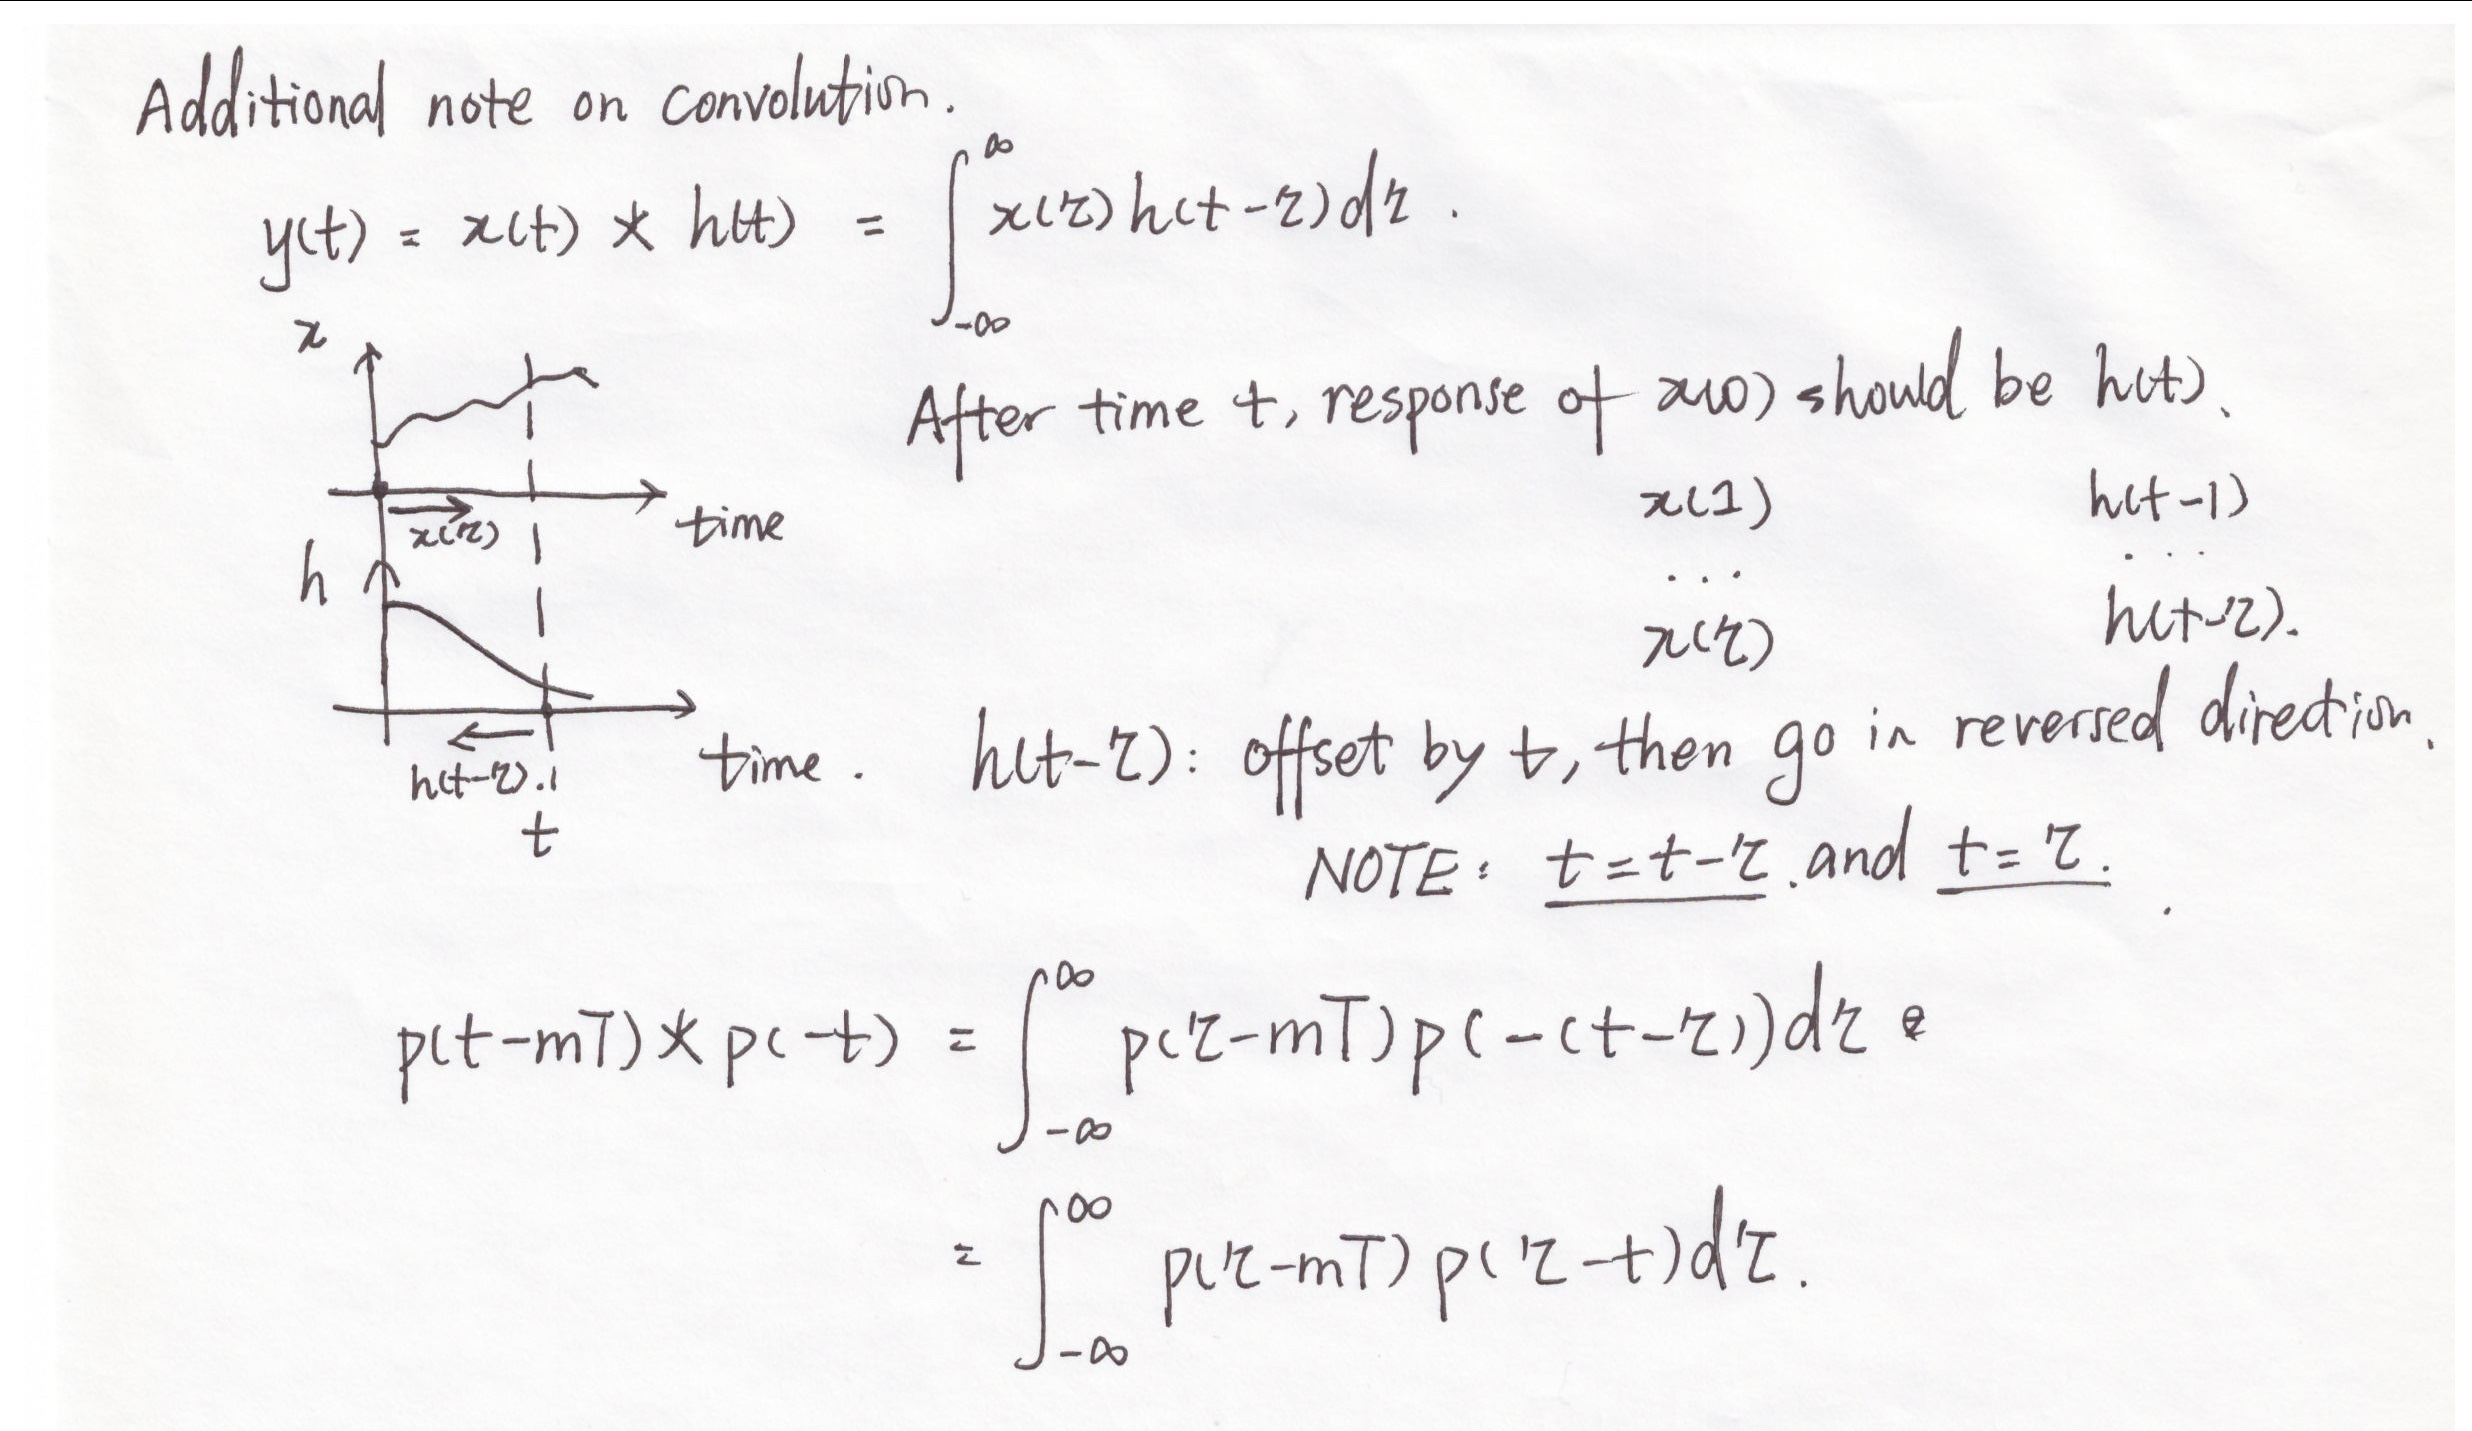 Additional note on convolution.
y(t) = x(t) * h(t) = ∫_{-∞}^{∞} x(τ) h(t-τ) dτ.
x
After time t, response of x(0) should be h(t).
x(1) h(t-1)
x(τ)
time
... ...
h
x(τ) h(t-τ).
h(t-τ).
time.
h(t-τ): offset by t, then go in reversed direction.
t
NOTE: t=t-τ. and t=τ.
p(t-mT) * p(-t) = ∫_{-∞}^{∞} p(τ-mT) p(-(t-τ)) dτ
= ∫_{-∞}^{∞} p(τ-mT) p(τ-t) dτ.